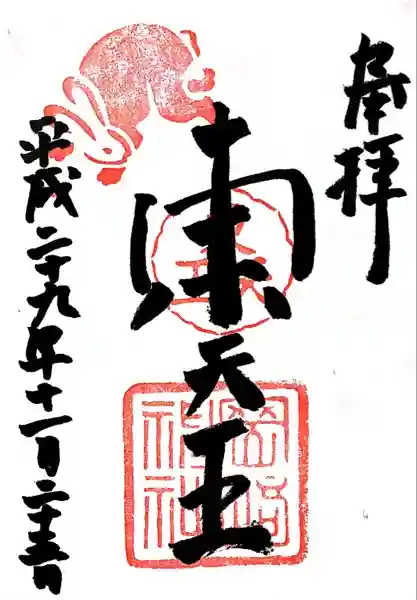 奉拝
東天王
岡﨑神社
平成二十九年十一月二十三日